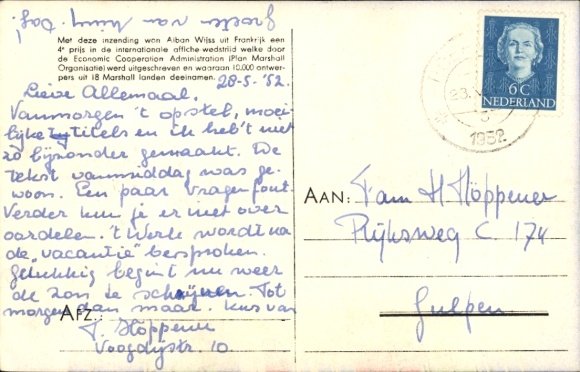 groeten van Winy Dag!
Met deze inzending won Alban Wijss uit Frankrijk een
4e prijs in de internationale affiche-wedstrijd welke door
de Economic Cooperation Administration (Plan Marshall
Organisatie) werd uitgeschreven en waaraan 10.000 ontwer-
pers uit 18 Marshall landen deelnamen.
28-5-'52
Lieve Allemaal,
Vanmorgen 't opstel, moei
lijke titels en ik heb 't niet
zo bijzonder gemaakt. De
tekst vanmiddag was ge-
woon. Een paar vragen fout.
Verder kun je er niet over
oordelen. 't Werk wordt na
de „vacantie" besproken.
Gelukkig begint nu weer
de zon te schijnen. Tot
morgen dan maar. Kus van
AFZ.:
J. Höppener
Voogdijstr. 10
6 C
NEDERLAND
1952
AAN: Fam H Höppener
Rijksweg C 174
Gulpen